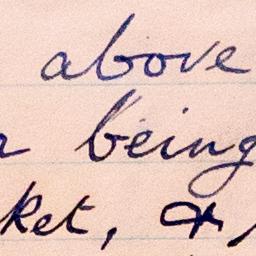 above
being
ket, &